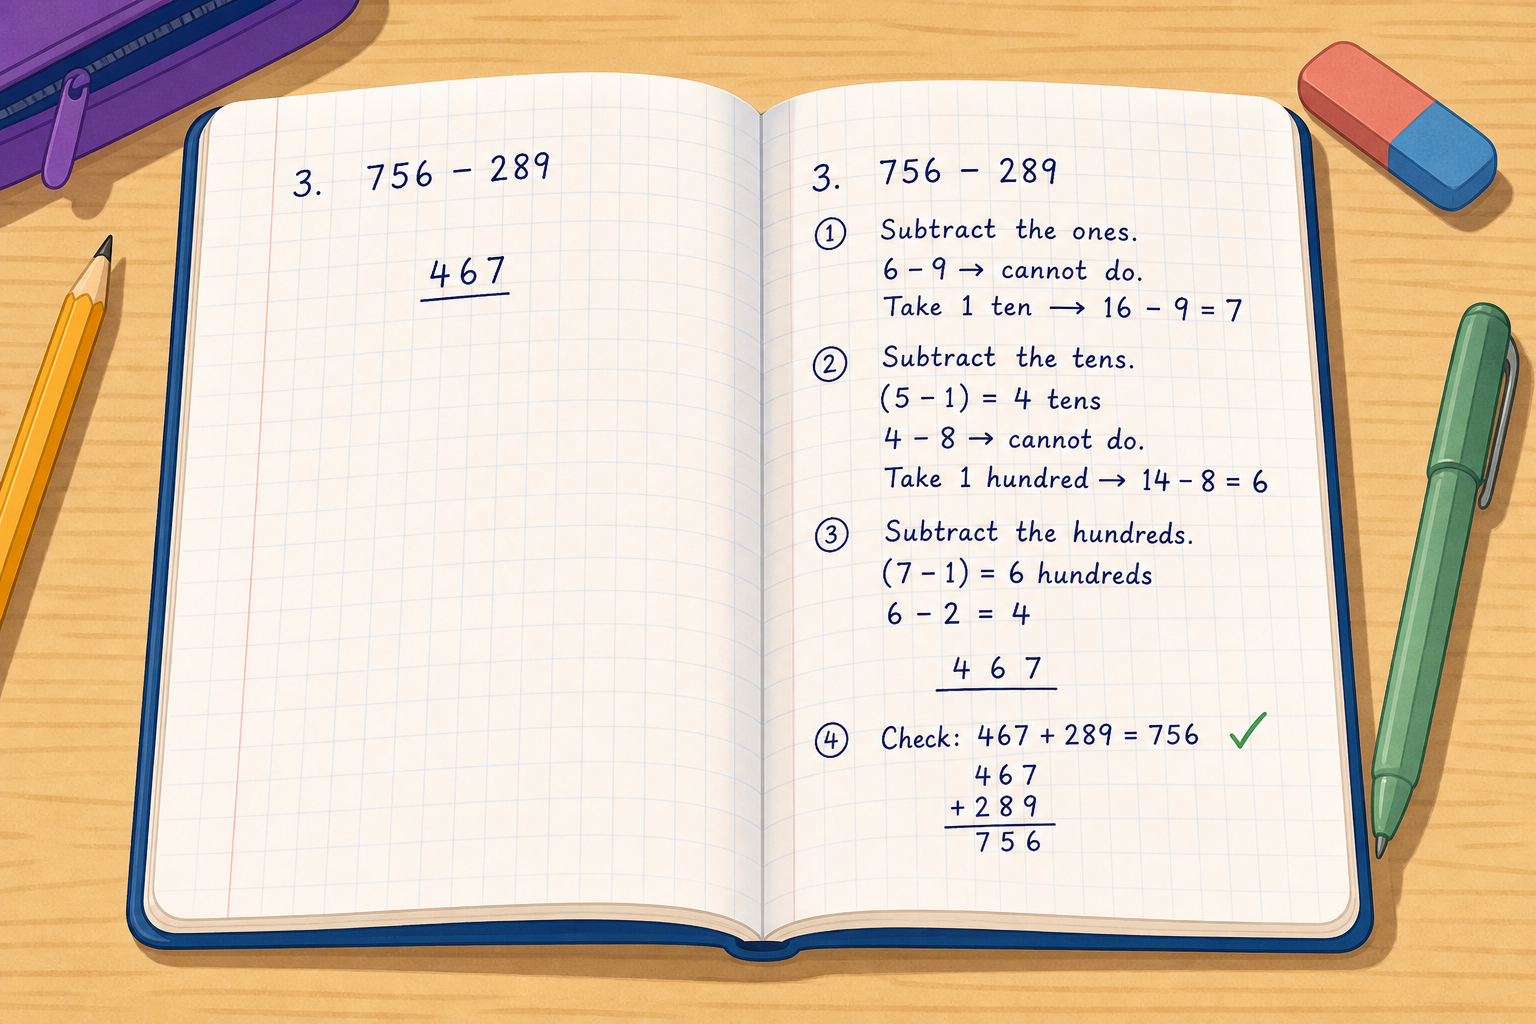 3. 756 – 289
467
3. 756 – 289
① Subtract the ones.
6 – 9 → cannot do.
Take 1 ten → 16 – 9 = 7
② Subtract the tens.
(5 – 1) = 4 tens
4 – 8 → cannot do.
Take 1 hundred → 14 – 8 = 6
③ Subtract the hundreds.
(7 – 1) = 6 hundreds
6 – 2 = 4
4 6 7
④ Check: 467 + 289 = 756 ✓
467
+ 289
756